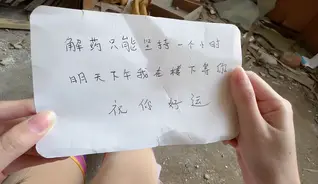 解药只能坚持一个小时
明天下午我在楼下等你
祝你好运